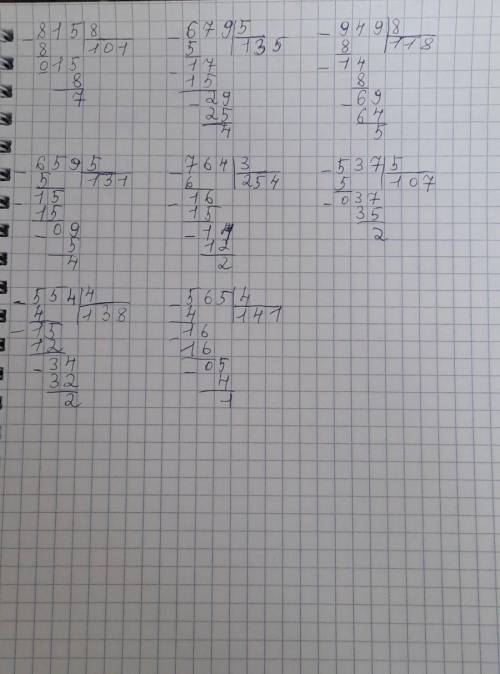 - 815 | 8
8 | 101
015
8
7
- 679 | 5
5 | 135
- 17
15
- 29
25
4
- 949 | 8
8 | 118
- 14
8
- 69
64
5
- 659 | 5
5 | 131
- 15
15
- 09
5
4
- 764 | 3
6 | 254
- 16
15
- 14
12
2
- 537 | 5
5 | 107
- 037
35
2
- 554 | 4
4 | 138
- 15
12
- 34
32
2
- 565 | 4
4 | 141
- 16
16
- 05
4
1